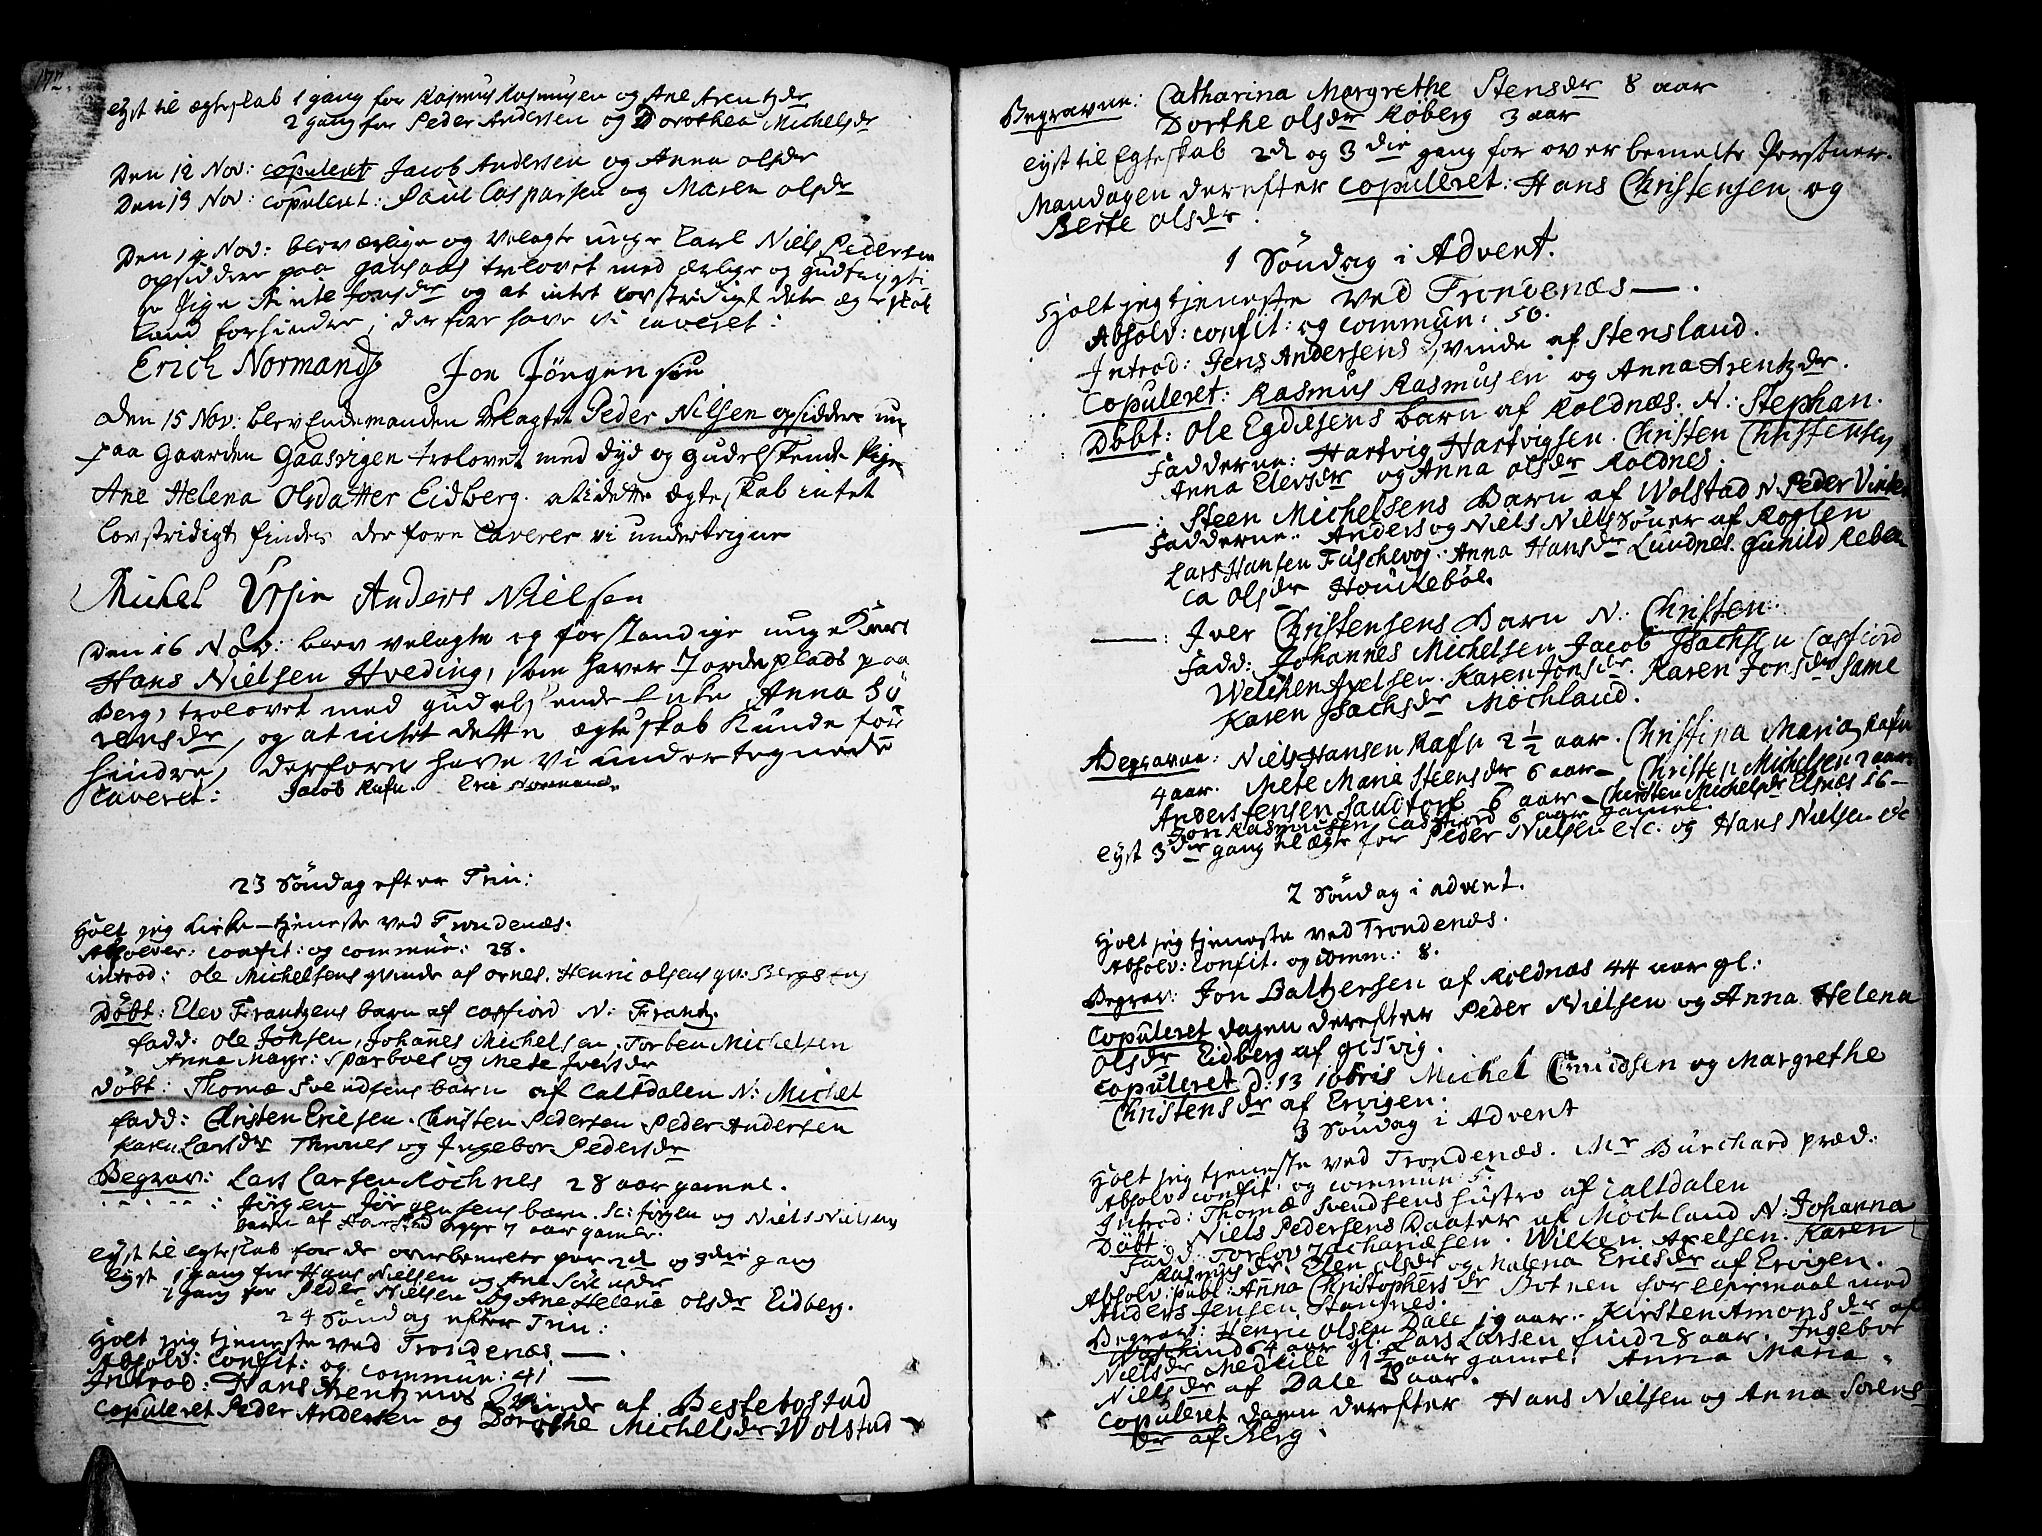 172.
lyst til ægteskab 1 gang for Rasmus Rasmusen og Ane Arentzdr
2 gang for Peder Andersen og Dorothea Michelsdr
Den 12 Nov: copuleret Jacob Andersen og Anna olsdr
Den 13 Nov: copuleret: Paul Casparsen og Maren olsdr
Den 14 Nov: blev ærlige og Velagte unge Carl Niels Pedersen
opsiddere paa gansaas trolovet med ærlige og gudfrygti
ge Pige Jonsdr og at intet lovstridigt dete ægteskab
kand forhindre, derfore have vi caveret:
Erich Normand Jon Jörgensøn
Den 15 Nov: blev Endemanden Velagte Peder Nilsen opsiddere
paa Gaarden Gaasvigen trolovet med dyd og gudelskende Pige
Ane Helena Olsdatter Eidberg. at i dette ægteskab intet
lovstridigt findes derfore Caverer vi undertegne
Michel Ursin Anders Nielsen
Den 16 Nov: blev velagte og forstandige unge Karl
Hans Nielsen Hveding, som haver Jordeplads paa
Berg, trolovet med gudelskende Enke Anna Sö
rensdr, og at intet dette ægteskab Kunde for
hindre, derforre have vi undertegnede
Caveret: Jacob Rafn. Eric Normand.
23 Söndag efter Trin:
Holt jeg Kirke-tjeneste ved Trondenæs.
Absolver: confit: og commun: 28.
introd: Ole Michelsens qvinde af ornes. Henric olsens qv: Bergs eng
Döbt: Elev Frantzens barn af Casfiord N: Frantz.
fadd: ole Johsen, Johanes Michelsen, Torben Michelsen
Anna Margr: Sparboes og Mete Iversdr
Döbt: Thomæ Svendsens barn af Caltdalen N: Michel
fadd: Christen Ericsen. Christen Pedersen Peder Andersen
Karen Larsdr Thrones og Ingebor Pedersdr
Begrav: Lars Larsen Röchnes 28 aar gamel.
- - - - - : Jörgen Jörgensens barn. sc: Jörgen og Niels Nielsens
barn af Harstad begge 7 aar gamle.
lyst til egteskab for de overbemelte par 2d og 3die gang
lyst 1 gang for Hans Nielsen og Ane Sörensdr
1 gang for Peder Nielsen og Ane Helena olsdr Eidberg.
24 Söndag efter Trin:
Holt jeg tjeneste ved Trondenæs —.
Absolv: Confit: og commun: 41 —
Introd: Hans Arentzens Qvinde af Bestebostad
Copuleret Peder Andersen og Dorothe Michelsdr Wolstad
Begravne: Catharina Margrethe Stensdr 8 aar
Dorthe olsdr Röberg 3 aar
lyst til Egteskab 2d og 3die gang for overbemelte Personer.
Mandagen derefter copuleret: Hans Christensen og
Berte olsdr.
1 Söndag i Advent.
Holt jeg tjeneste ved Trondenæs —.
Absolv: confit: og commun: 50.
Introd: Jens Andersens Qvinde af Stensland.
Copuleret: Rasmus Rasmusen og Anna Arentzdr.
Döbt: Ole Egdisens barn af Roldnæs. N: Stephan.
Fadderne: Hartvig Hartvigsen. Christen Christensen
Anna Elevsdr og Anna olsdr Roldnes.
—: Steen Michelsens Barn af Wolstad N. Peder Vinter
Fadderne: Anders og Niels Niels Söner af Roglen
Lars Hansen Fuschevog. Anna Hansdr Lundnes. Gunild Rebec
ca Olsdr Houckeböe.
—: Iver Christensens Barn N: Christen.
Fadd: Johannes Michelsen Jacob Isachsen Casfiord
Welchen Axelsen. Karen Jonsdr. Karen Jonsdr same
Karen Isachsdr Möchland.
Begravne: Niels Hansen Rafn 2½ aar. Christina Maria Rafn
4 aar. Mete Marie Steensdr 6 aar — Christen Michelsen 2 aar
Anders Jensen Sandtorf 6 aar — Christen Michelsdr Elsnæs 16 —
Jon Rasmussen Casfiord 6 aar gamel.
lyst 3die gang til ægte for Peder Nielsen etc. og Hans Nielsen etc
2 Söndag i advent.
Holt jeg tjeneste ved Trondenæs.
Absolv: Confit. og comm: 8.
Begrav: Jon Baltzersen af Roldnæs 44 aar gl:
Copuleret dagen derefter Peder Nielsen og Anna Helena
olsdr Eidberg af
Copuleret d: 13 10bris Michel Cnudsen og Margrethe
Christensdr af Ervigen.
3 Söndag i Advent
Holt jeg tjeneste ved Trondenæs. Mr Burchard præd:
Absolv: confit: og commun 5.
Introd: Thomæ Svendsens hustro af Caltdalen
Döbt: Niels Pedersens Daater af Möchland N: Johanna
fadd: Torlov Zachariæsen. Wilken Axelsen. Karen
Rasmusdr Elen olsdr og Malena Ericsdr af Ervigen.
Absolv: publ: Anna Christophersdr Botnen for leiermaal med
Anders Jensen Stangnes.
Begrav: Henric Olsen Dale 19 aar. Kirsten Amonsdr af
64 aar gl: Lars Larsen 28 aar. Ingebor
Nielsdr Medkile 1½ aar gamel. Anna Maria
Nielsdr af Dale 8 aar.
Copuleret dagen derefter Hans Nielsen og Anna Sörens
dr af Berg.